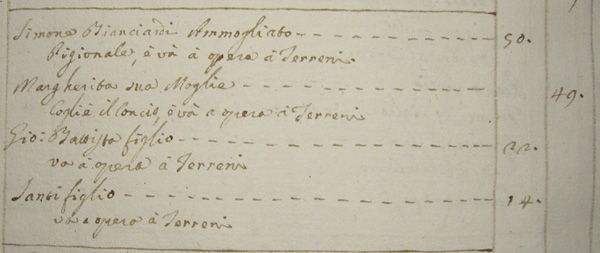 Simone Bianciardi Ammogliato - - - - - - - - - 50.
Pigionale, è và à opera à Terreni
Margherita sua Moglie - - - - - - - - - - - 49.
Coglie il Concio, è và a opera à Terreni
Gio: Battista figlio - - - - - - - - - - - - - 22.
va à opera à Terreni
Santi figlio - - - - - - - - - - - - - - - - 14.
và a opera à Terreni